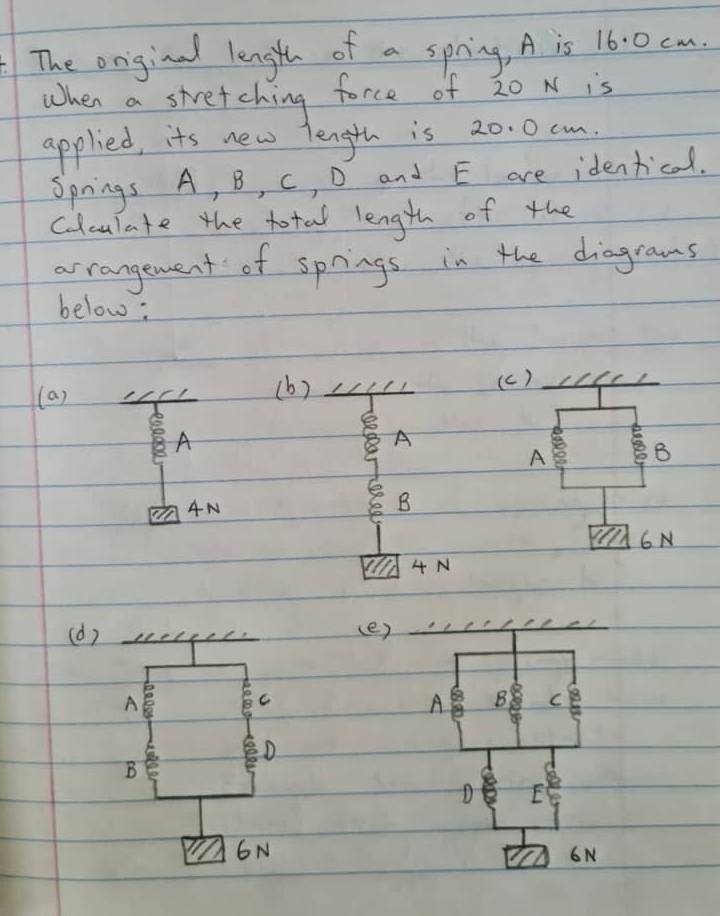 The original length of a spring, A is 16.0 cm.
When a stretching force of 20 N is
applied, its new length is 20.0 cm.
Springs A, B, C, D and E are identical.
Calculate the total length of the
arrangement of springs in the diagrams
below:
(a) (b) (c)
A
4N
A
B
4 N
A B
6 N
(d) (e)
A C
B D
6N
A B C
D E
6N